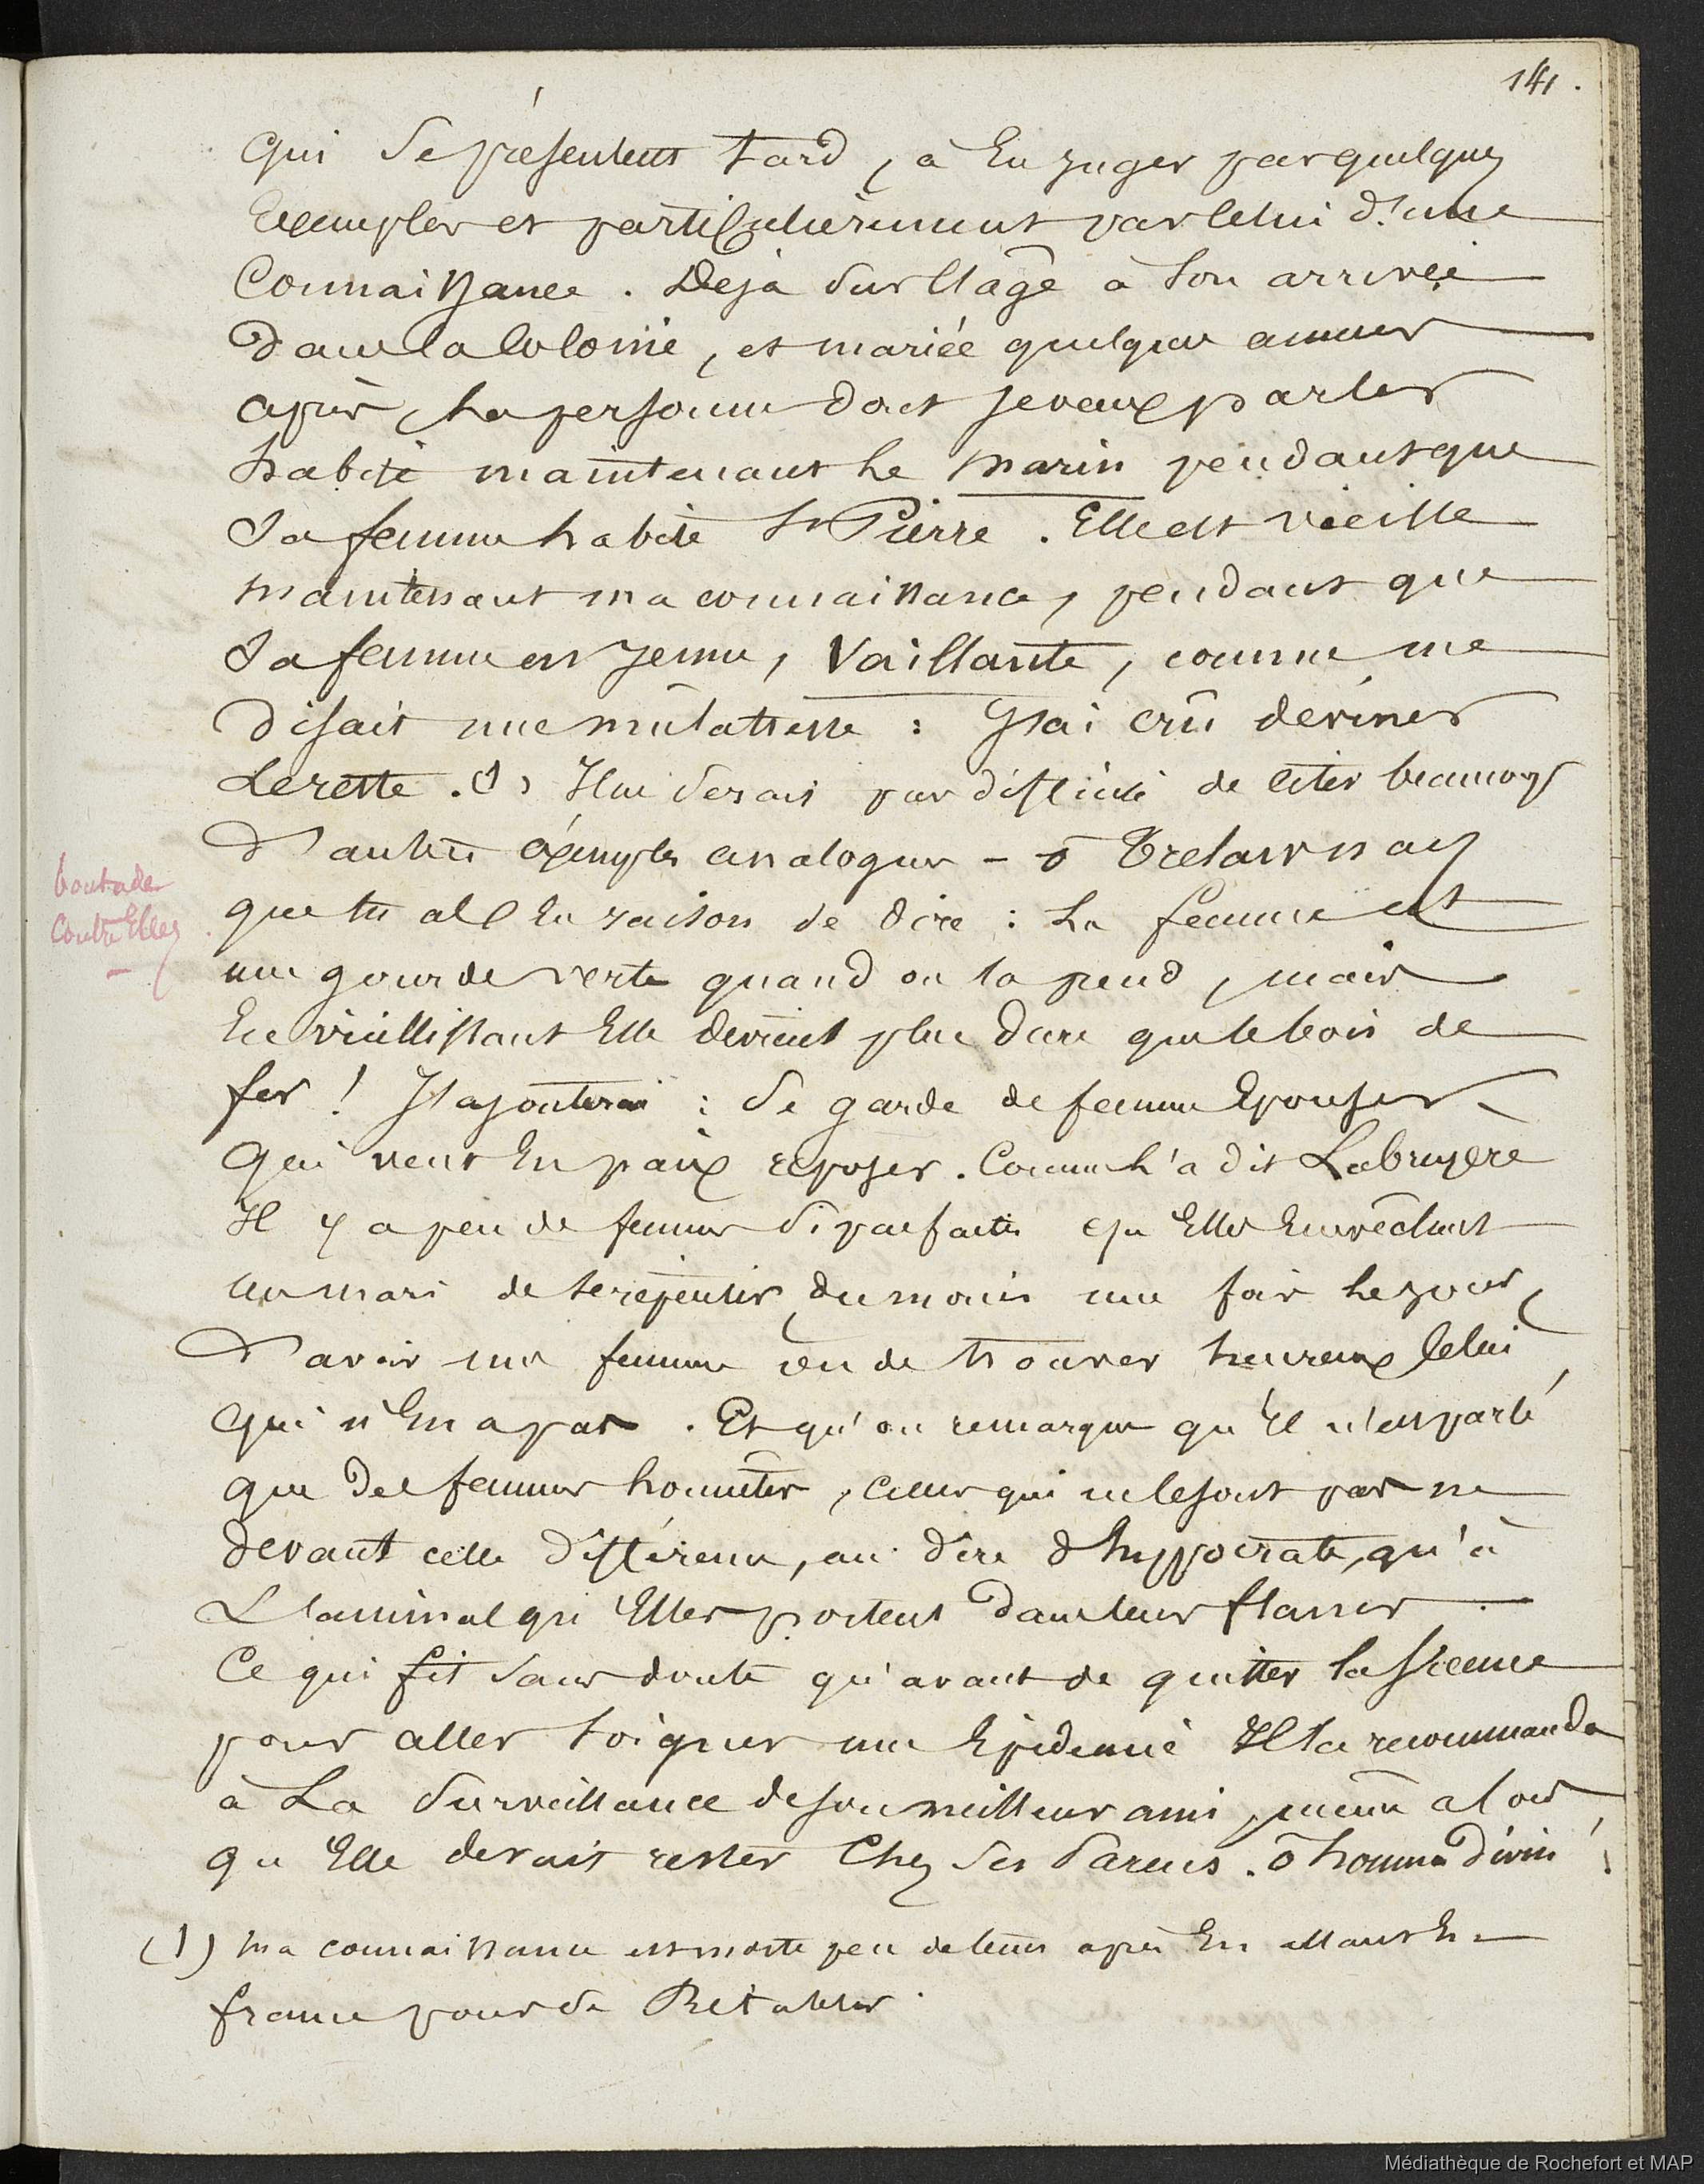 141.
qui se présentent tard, à En juger par quelques
Exemples et particulièrement par Celui d'une
Connaissance. Déjà sur l'âge à son arrivée
dans la Colonie, et mariée quelques années
après, la personne dont je veux parler
habite maintenant le Marin pendant que
sa femme habite St Pierre. Elle est vieille
maintenant ma connaissance, pendant que
sa femme est jeune, Vaillante, comme me
disait une mulatresse : J'ai crû deviner
Le reste. (1) Il ne serait pas difficile de citer beaucoup
d'autres éxemples analogues - ô Trelawnay
que tu as Eu raison de dire : La femme est
une gourde verte quand on la prend, mais
En vieillissant Elle devient plus dure que le bois de
fer ! J'ajouterai : Se garde de femme Epouser
Qui veut En paix reposer. Comme l'a dit Labruyère
Il y a peu de femmes si parfaites qu'Elles Empêchent
un mari de se repentir du moins une fois le jour,
d'avoir une femme ou de trouver heureux Celui
qui n'En a pas. Et qu'on remarque qu'Il n'est parlé
que des femmes honnêtes, celles qui ne le sont pas ne
devant celle différence, au dire d'hyppocrate, qu'à
L'animal qu'Elles portent dans leurs flancs.
Ce qui fit sans doute qu'avant de quitter la sienne
pour aller soigner une Epidemie Il la recommanda
à La surveillance de son meilleur ami, même alors
qu'Elle devait rester Chez ses Parens. ô homme divin !
(1) ma connaissance est morte peu de tems après En allant En
france pour se Rétablir.
boutade
Contre Elles
Médiathèque de Rochefort et MAP